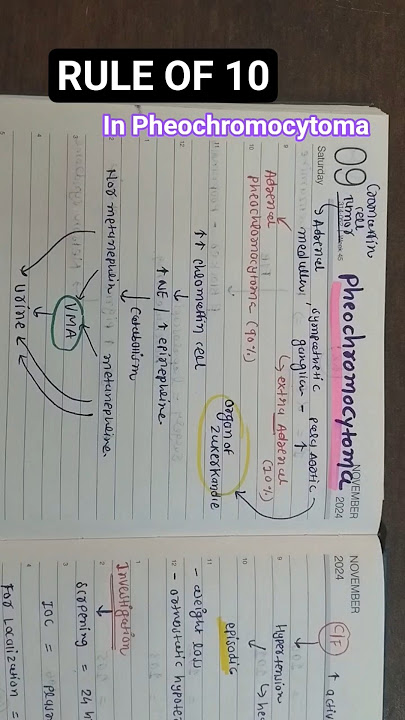 RULE OF 10
In Pheochromocytoma
NOVEMBER
2024
09
Saturday
Pheochromocytoma
Cromaffin
cell
tumor
Adrenal
medulla
, sympathetic
ganglian -
Para Aortic -
↑
Adrenal
pheochromocytoma (90%)
extra Adrenal
(10%)
organ of
zukerkandle
↑↑ chromaffin cell
↑ NE / ↑ epinephrine
Catabolism
Nor metanephrin
metanephrine
VMA
Urine
NOVEMBER
2024
C/F
↑
Hypertension
episodic
- weight loss
Investigation
Screening = 24 h
IOC =
For Localization =